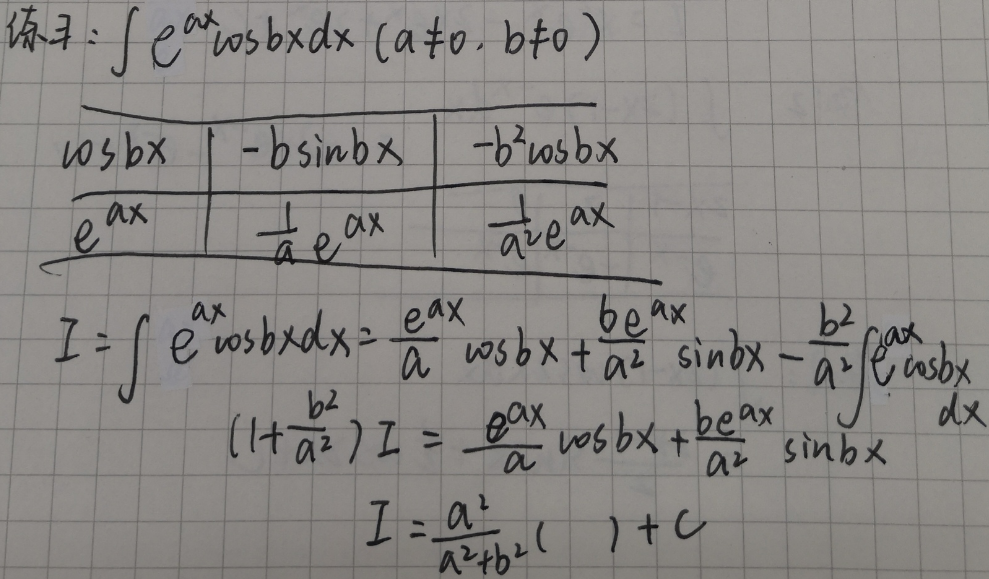 练习：∫ e^{ax} cosbx dx (a≠0, b≠0)
cosbx | -b sinbx | -b² cosbx
e^{ax} | \frac{1}{a} e^{ax} | \frac{1}{a²} e^{ax}
I = ∫ e^{ax} cosbx dx = \frac{e^{ax}}{a} cosbx + \frac{be^{ax}}{a²} sinbx - \frac{b²}{a²} ∫ e^{ax} cosbx dx
(1+\frac{b²}{a²}) I = \frac{e^{ax}}{a} cosbx + \frac{be^{ax}}{a²} sinbx
I = \frac{a²}{a²+b²} (    ) + C